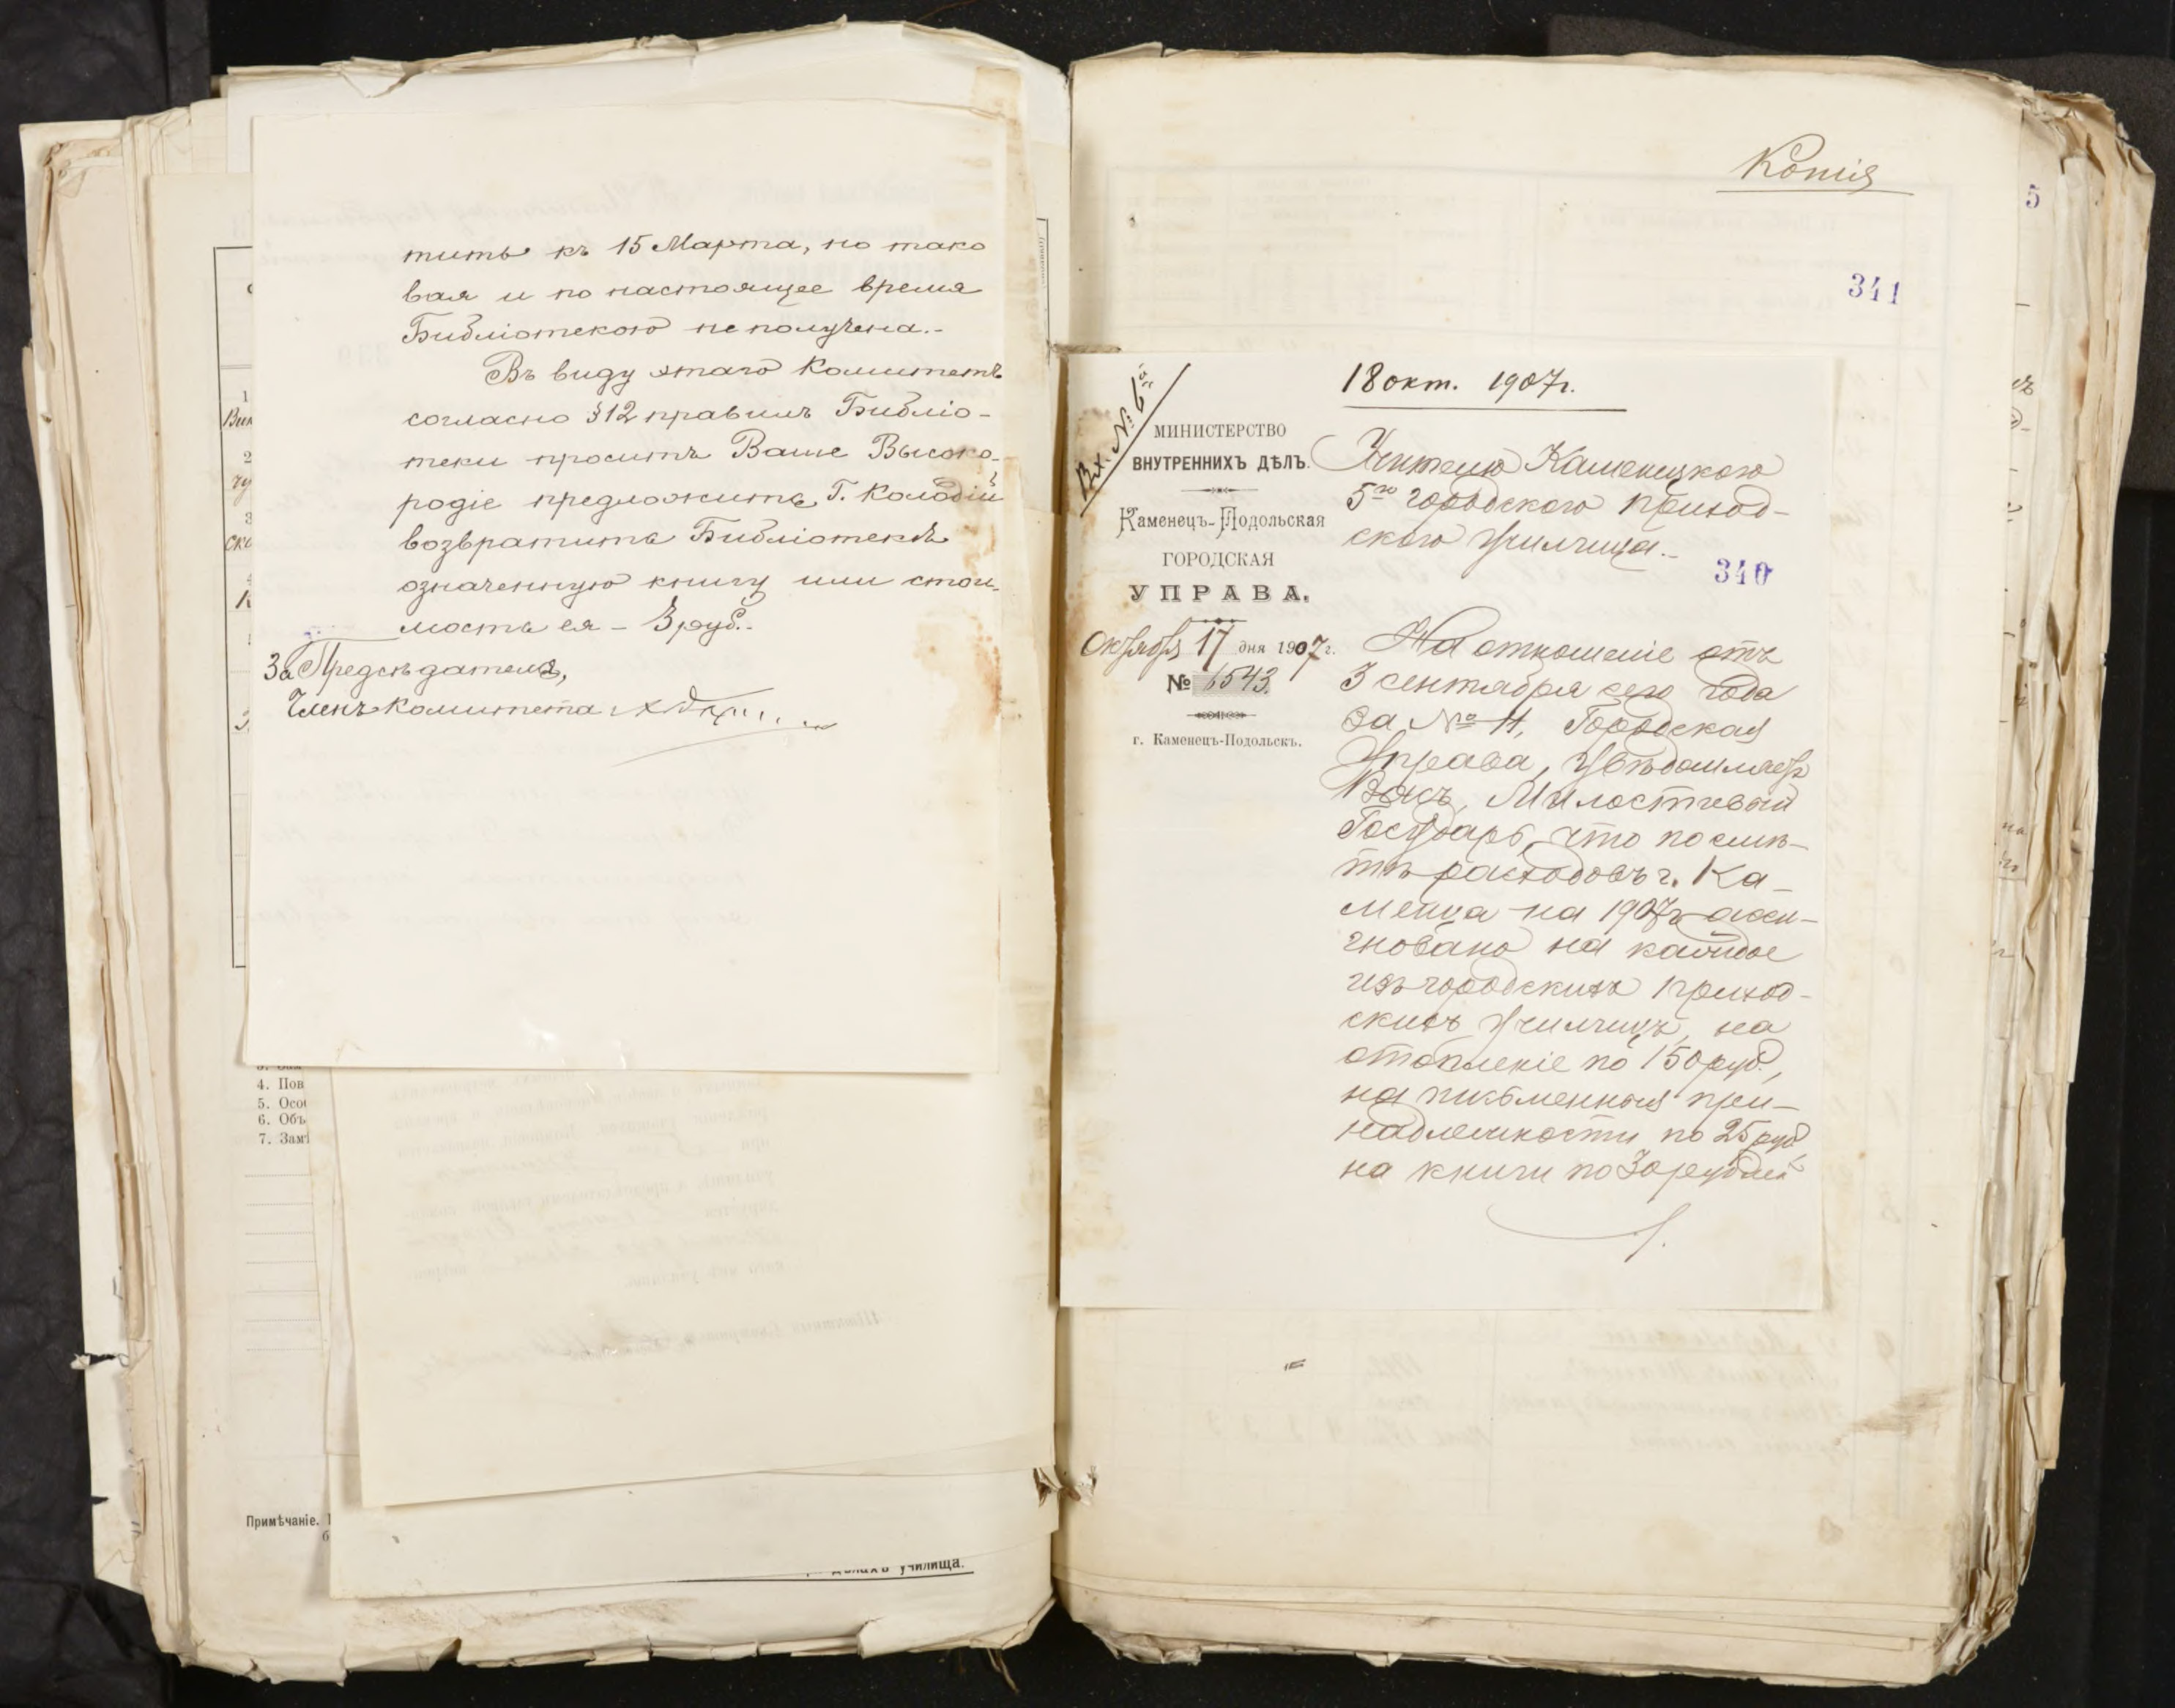 тить къ 15 Марта, но тако
вая и по настоящее время
Библіотекою не получена.-
Въ виду этаго Комитетъ
согласно §12 правилъ Библіо-
теки проситъ Ваше Высоко-
родіе предложить Г. Колодій
возвратить Библіотекѣ
означенную книгу или стои-
мость ея - 3 руб.-
За Предсѣдателя,
Членъ Комитета
4. Пов
5. Осо
6. Объ
7. Зам
Примѣчаніе.
училища.
Копія
5
341
Вх. №
18 окт. 1907г.
МИНИСТЕРСТВО
ВНУТРЕННИХЪ ДѢЛЪ.
Каменецъ-Подольская
ГОРОДСКАЯ
УПРАВА.
Октября 17 дня 1907 г.
№ 6543.
г. Каменецъ-Подольскъ.
Учителю Каменецкого
5го городского приход-
ского училища.-
340
На отношеніе отъ
3 сентября сего года
за № 11, Городская
Управа, увѣдомляетъ
Васъ, Милостивый
Государь, что по смѣ-
тѣ расходовъ г. Ка-
менца на 1907 г. асси-
гновано на каждое
изъ городскихъ приход-
скихъ училищъ, на
отопленіе по 150 руб.,
на письменныя при-
надлежности по 25 руб.,
на книги по 30 рублей